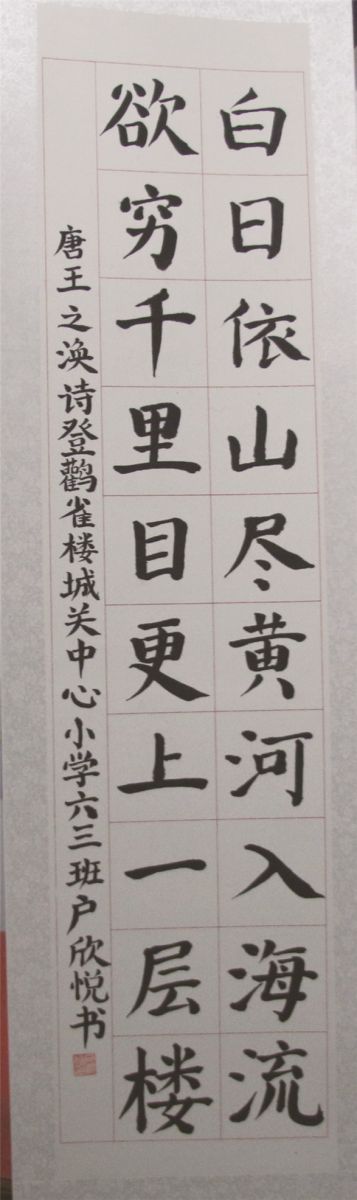 白日依山尽黄河入海流
欲穷千里目更上一层楼
唐王之涣诗登鹳雀楼城关中心小学六三班户欣悦书